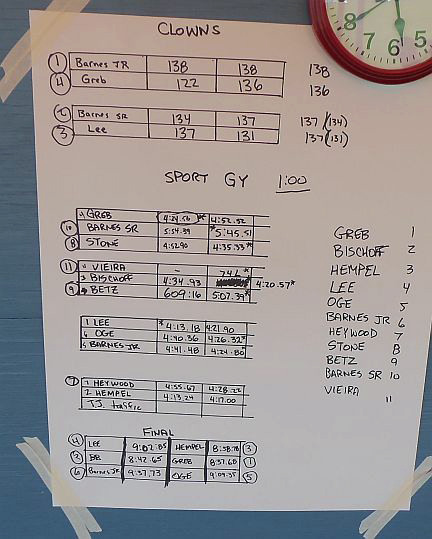 CLOWNS
1 Barnes JR 138 138 138
4 Greb 122 136 136
2 Barnes SR 134 137 137 (134)
3 Lee 137 131 137 (131)
SPORT GY 1:00
GREB 4:52.52
10 BARNES SR 5:54.39 *5:45.51
8 STONE 4:52.90 4:35.33*
11 VIEIRA - 746*
BISCHOFF 4:34.93 4:20.57*
9 BETZ 609:16 5:07.39*
1 LEE *4:13.18 4:21.90
OGE 4:40.36 4:26.32*
BARNES JR 4:41.48 4:24.80*
7 HEYWOOD 4:55.67 4:28.22
2 HEMPEL 4:13.24 4:17.00
T.J. traffic
GREB 1
BISCHOFF 2
HEMPEL 3
LEE 4
OGE 5
BARNES JR 6
HEYWOOD 7
STONE 8
BETZ 9
BARNES SR 10
VIEIRA 11
FINAL
4 LEE 9:02.85 HEMPEL 8:58.78 3
2 BB 8:42.65 GREB 8:37.60 1
6 Barnes JR 9:37.73 OGE 9:09.35 5
8 7 6 5 4